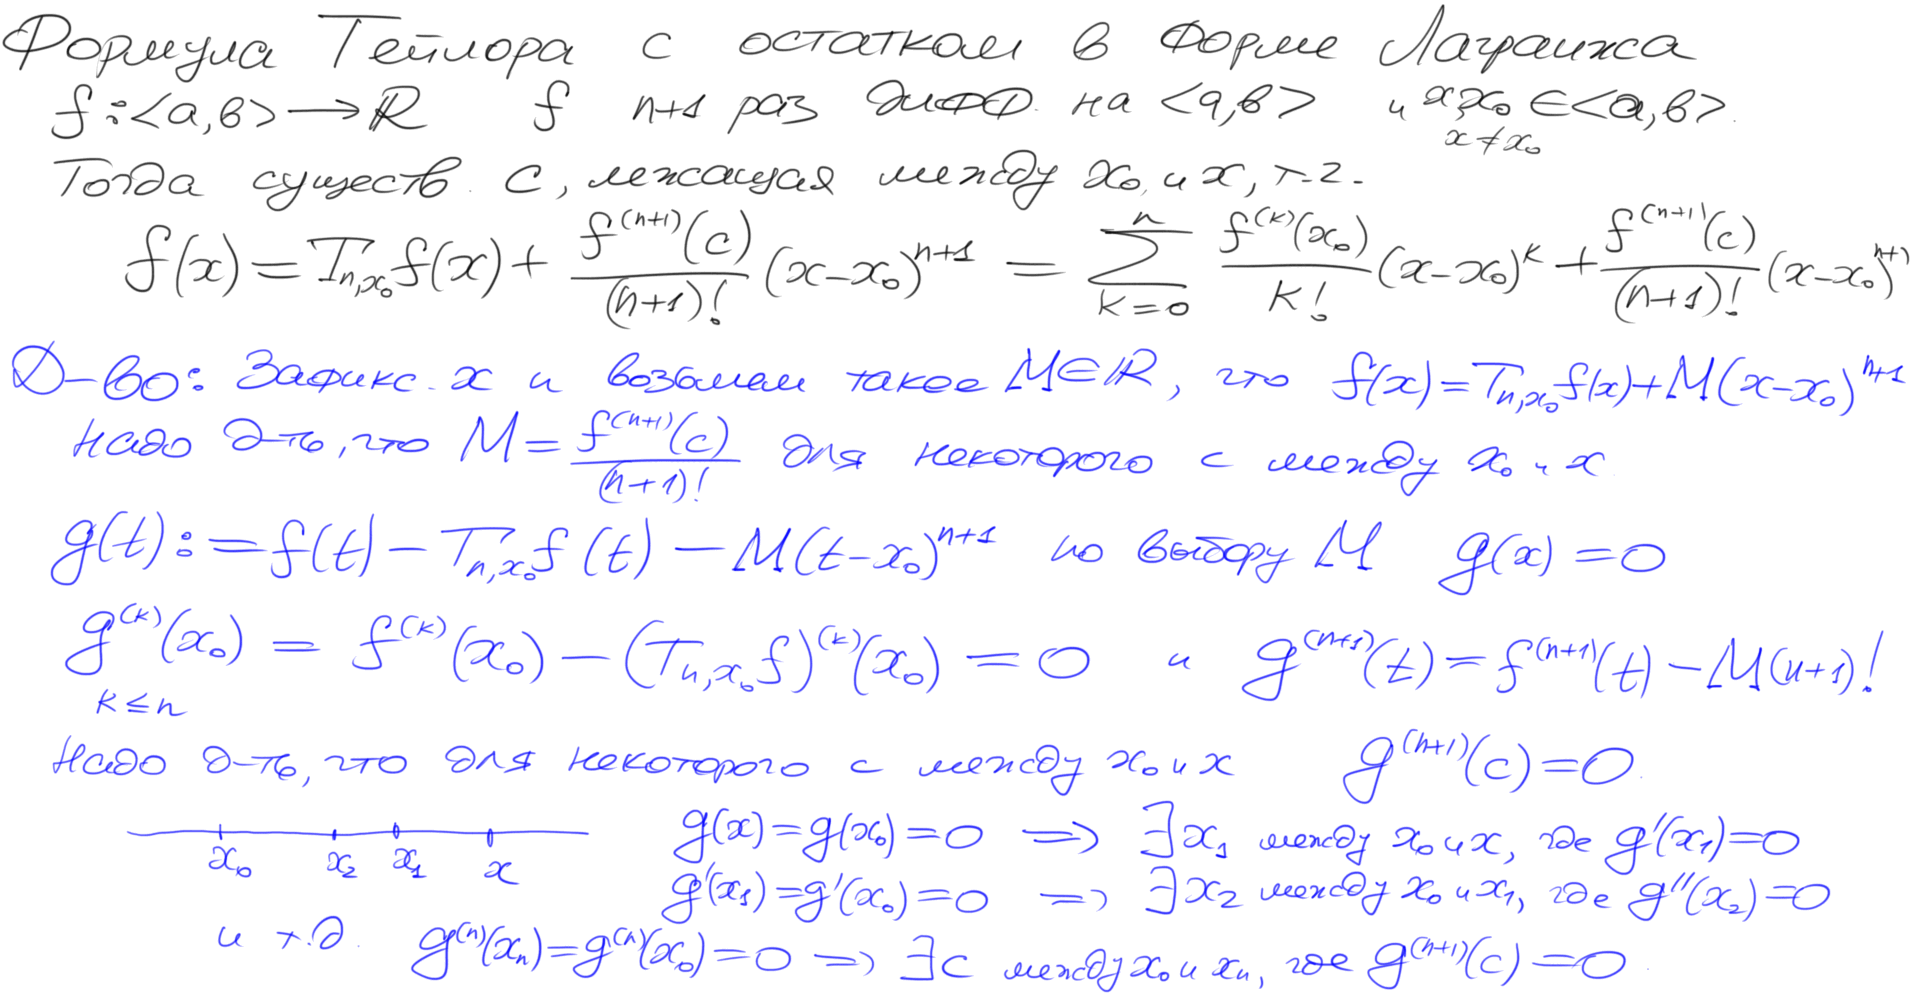 Формула Тейлора с остатком в форме Лагранжа
f:<a,b>⟶ℝ f n+1 раз дифф. на <a,b> и x,x₀∈<a,b>.
x≠x₀
Тогда существ. c, лежащая между x₀ и x, т.ч.
f(x)=T_{n,x₀}f(x)+\frac{f^{(n+1)}(c)}{(n+1)!}(x-x₀)^{n+1} = \sum_{k=0}^{n} \frac{f^{(k)}(x₀)}{k!}(x-x₀)^k+\frac{f^{(n+1)}(c)}{(n+1)!}(x-x₀)^{n+1}
Д-во: Зафикс. x и возьмем такое M∈ℝ, что f(x)=T_{n,x₀}f(x)+M(x-x₀)^{n+1}
Надо д-ть, что M=\frac{f^{(n+1)}(c)}{(n+1)!} для некоторого c между x₀ и x
g(t):=f(t)-T_{n,x₀}f(t)-M(t-x₀)^{n+1} по выбору M g(x)=0
g^{(k)}(x₀) = f^{(k)}(x₀)-(T_{n,x₀}f)^{(k)}(x₀)=0 и g^{(n+1)}(t)=f^{(n+1)}(t)-M(n+1)!
k≤n
Надо д-ть, что для некоторого c между x₀ и x g^{(n+1)}(c)=0.
g(x)=g(x₀)=0 ⟹ ∃x₁ между x₀ и x, где g'(x₁)=0
x₀ x₂ x₁ x
g'(x₁)=g'(x₀)=0 ⟹ ∃x₂ между x₀ и x₁, где g''(x₂)=0
и т.д. g^{(n)}(xₙ)=g^{(n)}(x₀)=0 ⟹ ∃c между x₀ и xₙ, где g^{(n+1)}(c)=0.